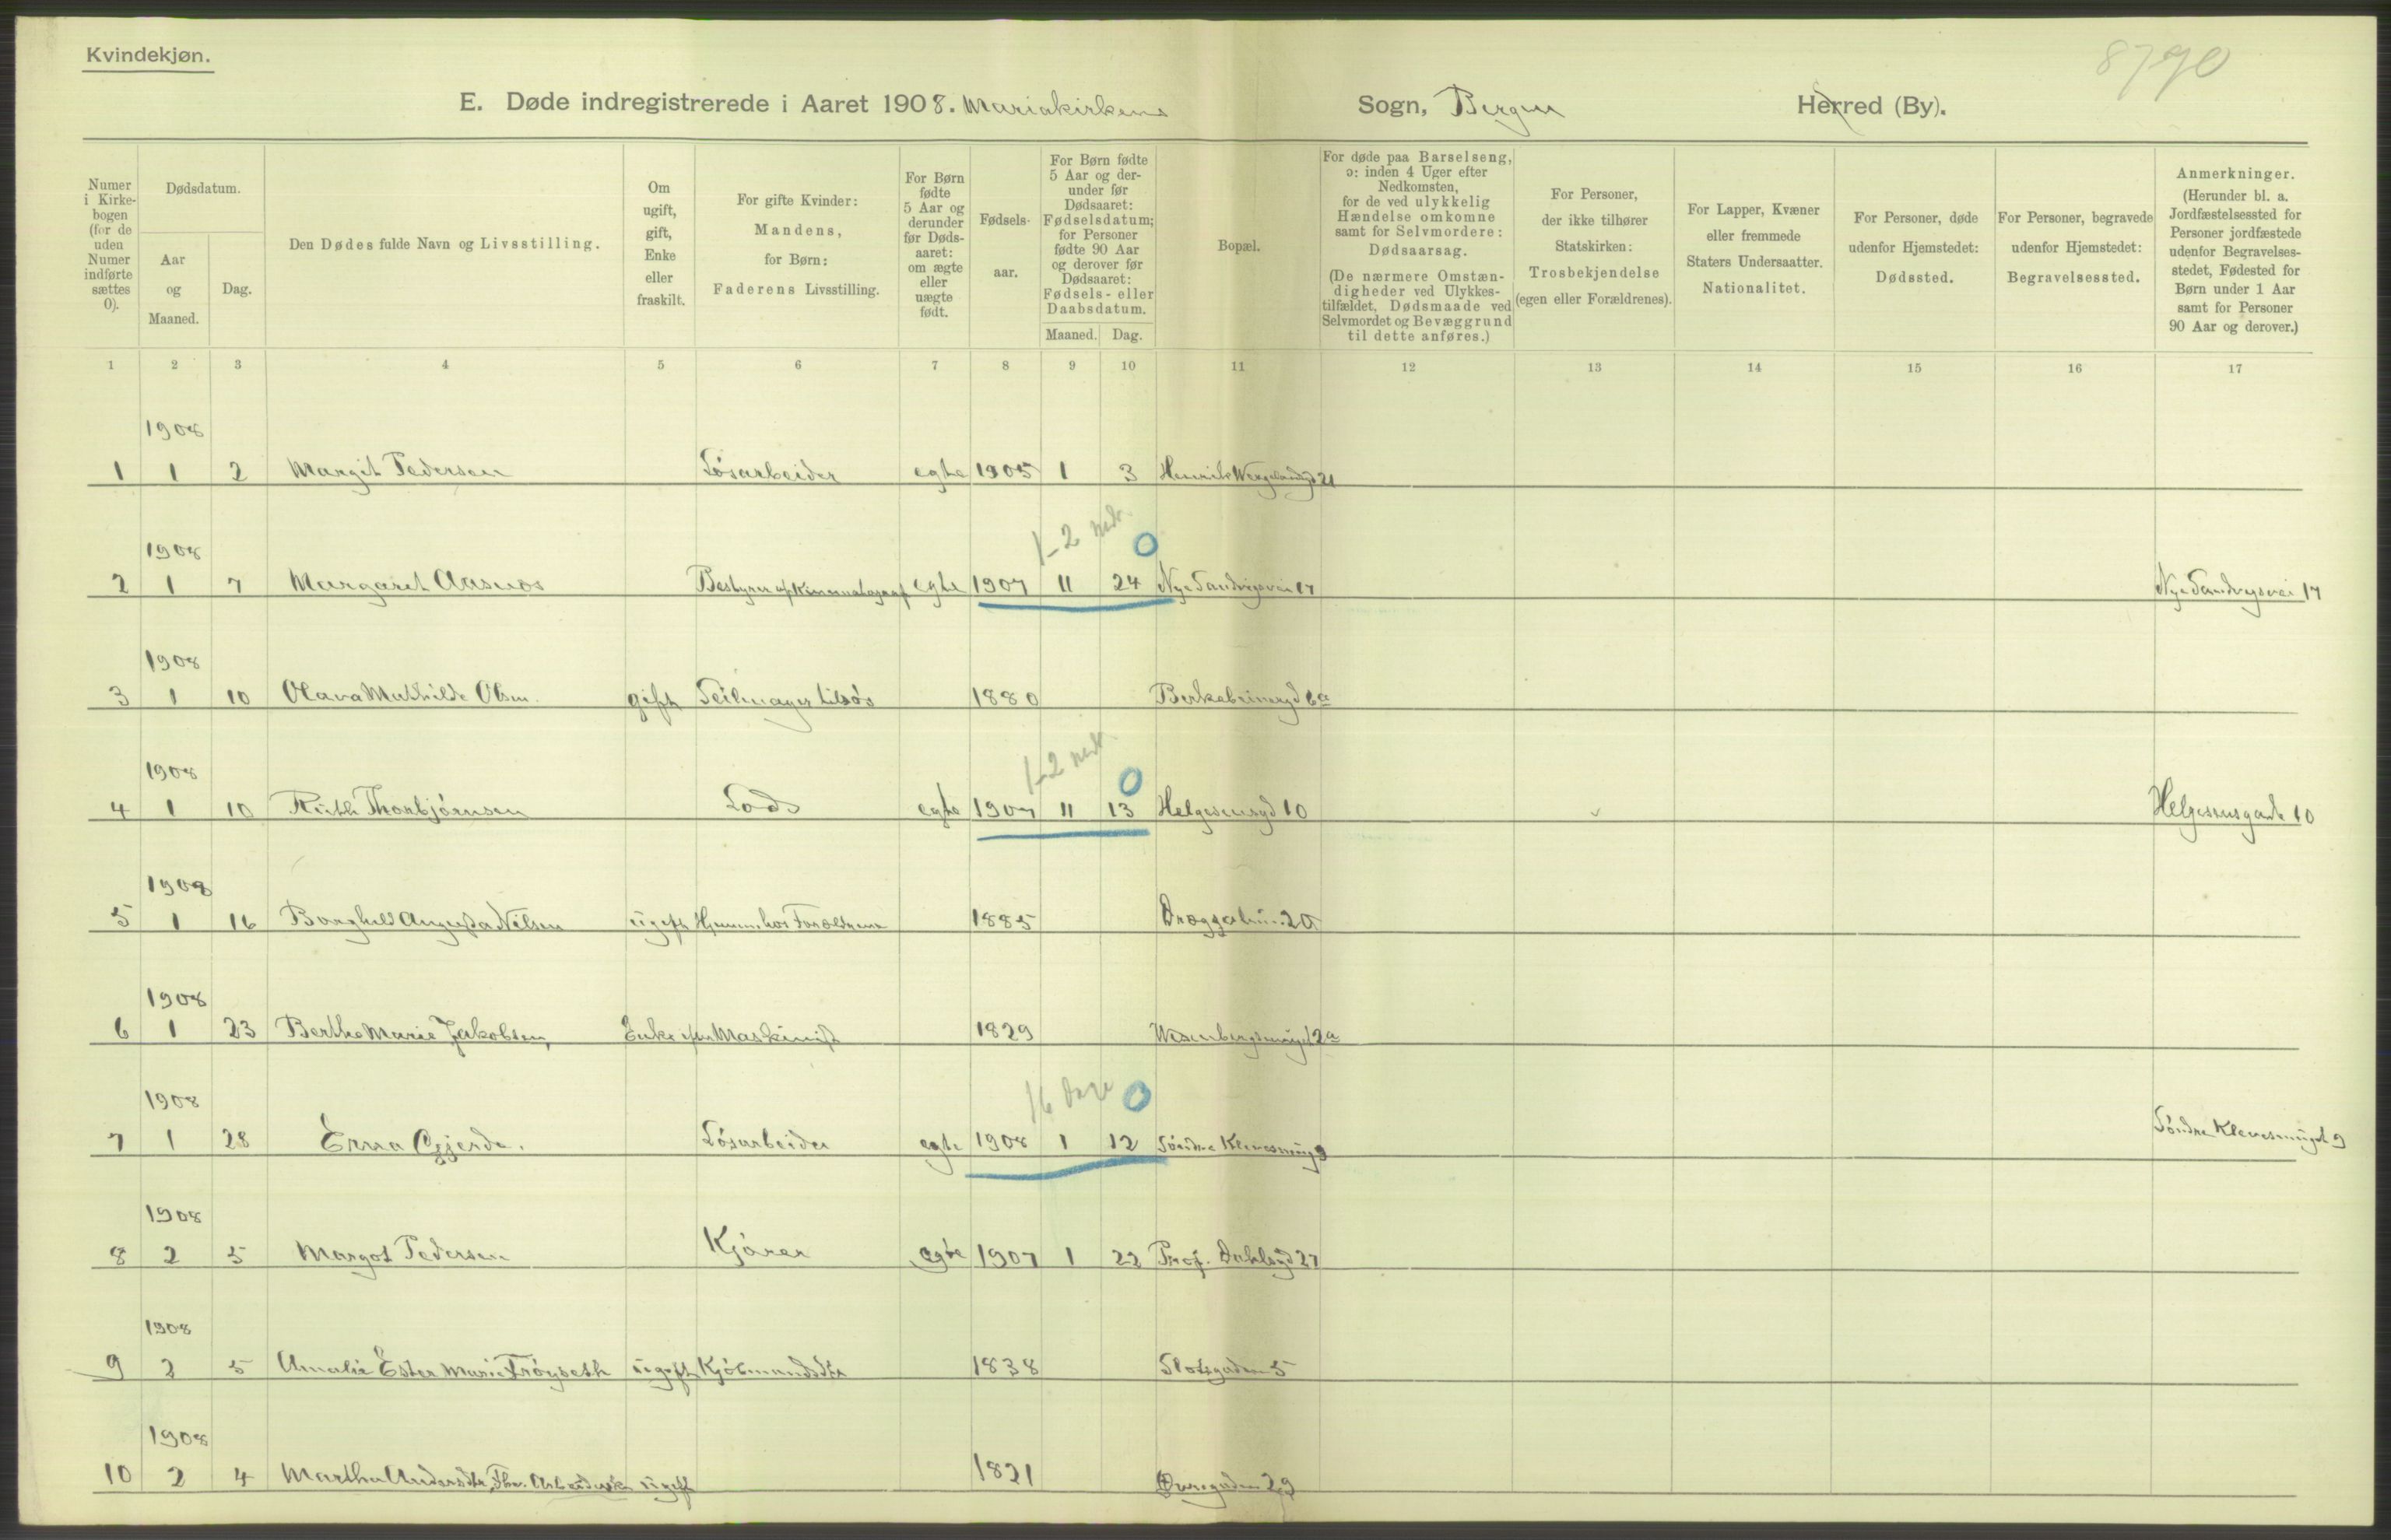 Kvindekjøn.
8790
E. Døde indregistrerede i Aaret 1908. Mariakirkens Sogn, Bergen Herred (By).
Numer i Kirkebogen (for de uden Numer indførte sættes 0).
Dødsdatum.
Aar og Maaned.
Dag.
Den Dødes fulde Navn og Livsstilling.
Om ugift, gift, Enke eller fraskilt.
For gifte Kvinder: Mandens, for Børn: Faderens Livsstilling.
For Børn fødte 5 Aar og derunder før Dødsaaret: om ægte eller uægte født.
Fødselsaar.
For Børn fødte 5 Aar og derunder før Dødsaaret: Fødselsdatum; for Personer fødte 90 Aar og derover før Dødsaaret: Fødsels- eller Daabsdatum.
Maaned. Dag.
Bopæl.
For døde paa Barselseng, ɔ: inden 4 Uger efter Nedkomsten, for de ved ulykkelig Hændelse omkomne samt for Selvmordere: Dødsaarsag.
(De nærmere Omstændigheder ved Ulykkestilfældet, Dødsmaade ved Selvmordet og Bevæggrund til dette anføres.)
For Personer, der ikke tilhører Statskirken: Trosbekjendelse (egen eller Forældrenes).
For Lapper, Kvæner eller fremmede Staters Undersaatter. Nationalitet.
For Personer, døde udenfor Hjemstedet: Dødssted.
For Personer, begravede udenfor Hjemstedet: Begravelsessted.
Anmerkninger.
(Herunder bl. a. Jordfæstelsessted for Personer jordfæstede udenfor Begravelsesstedet, Fødested for Børn under 1 Aar samt for Personer 90 Aar og derover.)
1 2 3 4 5 6 7 8 9 10 11 12 13 14 15 16 17
1908
1 1 2 Margit Pedersen Løsarbeider egte 1905 1 3 Henrik Wergelandsgd 21
1-2 mdr. 0
1908
2 1 7 Margaret Aasnæs Bestyrer af Kinematograf egte 1907 11 24 Nye Sandvigsvei 17 Nye Sandvigsvei 17
1908
3 1 10 Olava Mathilde Olsen. gift Seilmager tilsøs 1880 6a
1-2 mdr. 0
1908
4 1 10 Ruth Thorbjørnsen Lods egte 1907 11 13 Helgesensgd 10 Helgesensgade 10
1908
5 1 16 Borghild Augusta Nilsen ugift Hjemme hos Forældrene 1885 20
1908
6 1 23 Berthe Marie Jakobsen, Enke efter Maskinist 1829 Wesenbergsmuget 2a
16 Dage 0
1908
7 1 28 Erna Gjerde. Løsarbeider egte 1908 1 12 Søndre Klevesmug 9 Søndre Klevesmuget 9
1908
8 2 5 Margot Pedersen Kjører egte 1907 1 22 Prof. Dahlsgd 27
1908
9 2 5 Amalie Ester Marie Frøyseth ugift Kjøbmandsdtr 1838 Slotsgaden 5
1908
10 2 4 Martha Andersdtr, Fhv. Arbeidersk ugift 1821 Øvregaden 29